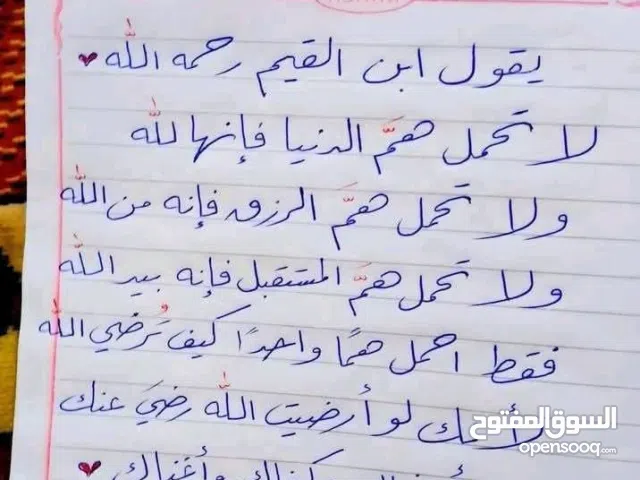 يقول ابن القيم رحمه الله
لا تحمل همَّ الدنيا فإنها لله
ولا تحمل همَّ الرزق فإنه من الله
ولا تحمل همَّ المستقبل فإنه بيد الله
فقط احمل همًا واحدًا كيف تُرضي الله
لأنك لو أرضيت الله رضيَ عنك
وأغناك
السوق المفتوح
opensooq.com